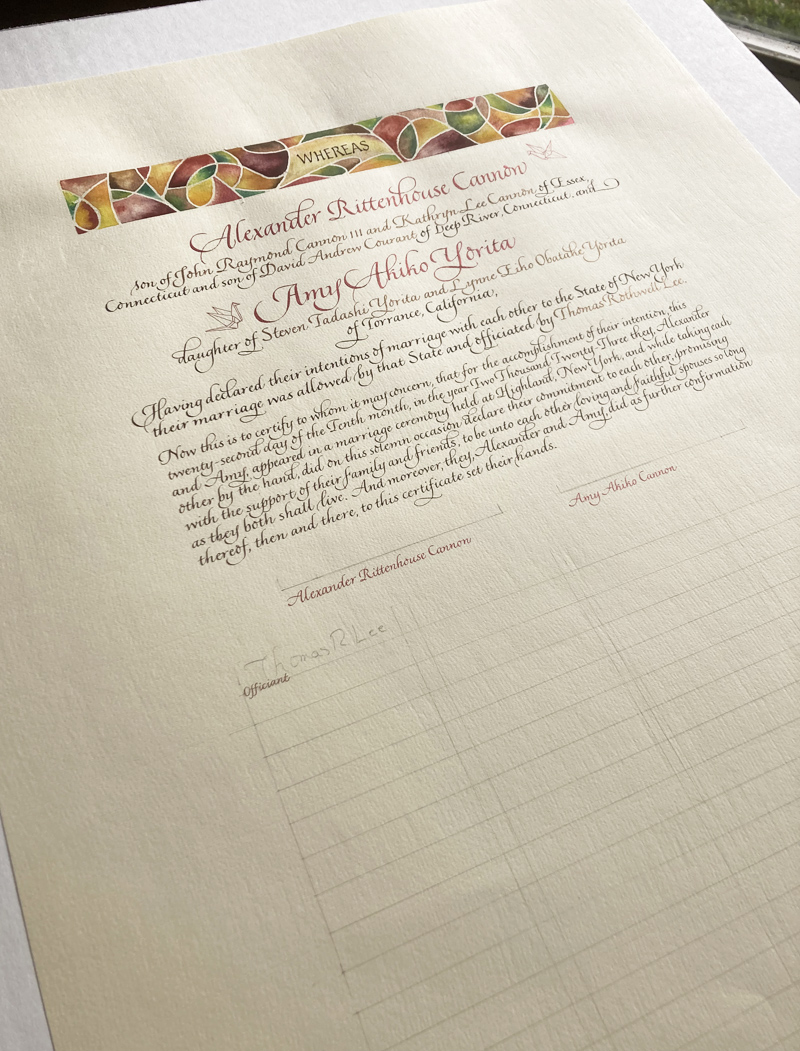 WHEREAS
Alexander Rittenhouse Cannon
son of John Raymond Cannon III and Kathryn Lee Cannon of Essex,
Connecticut and son of David Andrew Courant of Deep River, Connecticut, and
Amy Akiko Yorita
daughter of Steven Tadashi Yorita and Lynne Eiko Obatake Yorita
of Torrance, California,
Having declared their intentions of marriage with each other to the State of New York
their marriage was allowed by that State and officiated by Thomas Rothwell Lee.
Now this is to certify to whom it may concern, that for the accomplishment of their intention, this
twenty-second day of the Tenth month, in the year Two Thousand Twenty-Three they, Alexander
and Amy, appeared in a marriage ceremony held at Highland, New York, and while taking each
other by the hand, did on this solemn occasion declare their commitment to each other, promising
with the support of their family and friends, to be unto each other loving and faithful spouses so long
as they both shall live. And moreover, they, Alexander and Amy, did as further confirmation
thereof, then and there, to this certificate set their hands.
Amy Akiko Cannon
Alexander Rittenhouse Cannon
Thomas R Lee
Officiant